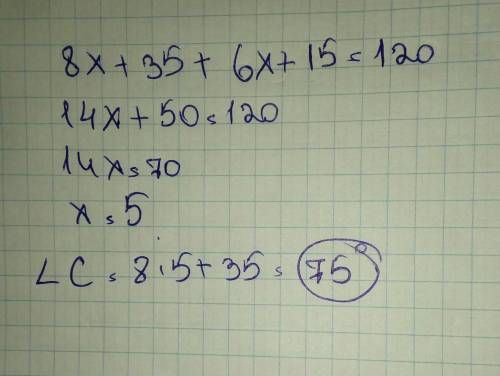 8x + 35 + 6x + 15 = 120
14x + 50 = 120
14x = 70
x = 5
∠C = 8·5 + 35 = 75°